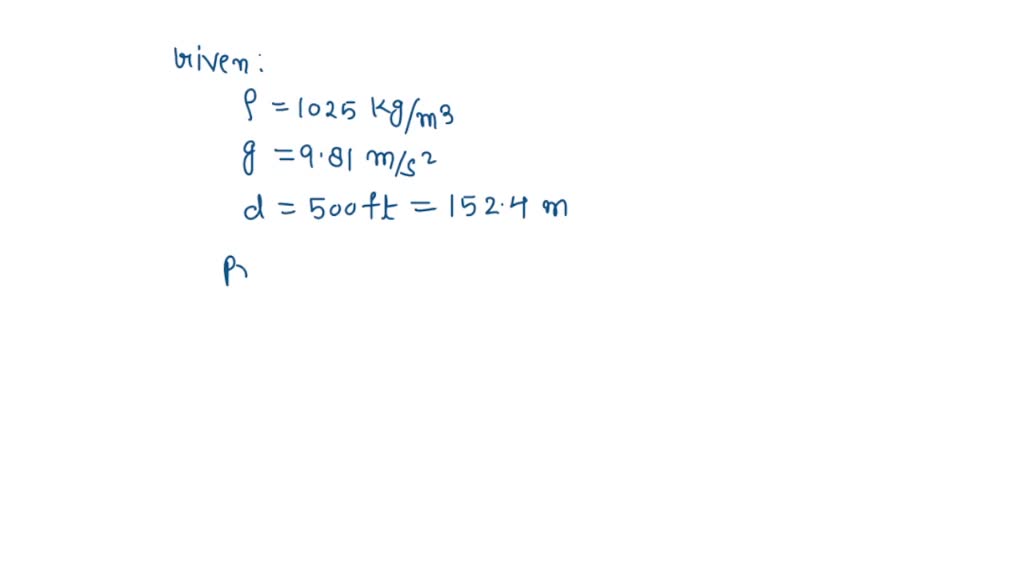 Given:
ρ = 1025 kg/m3
g = 9.81 m/s2
d = 500ft = 152.4 m
P